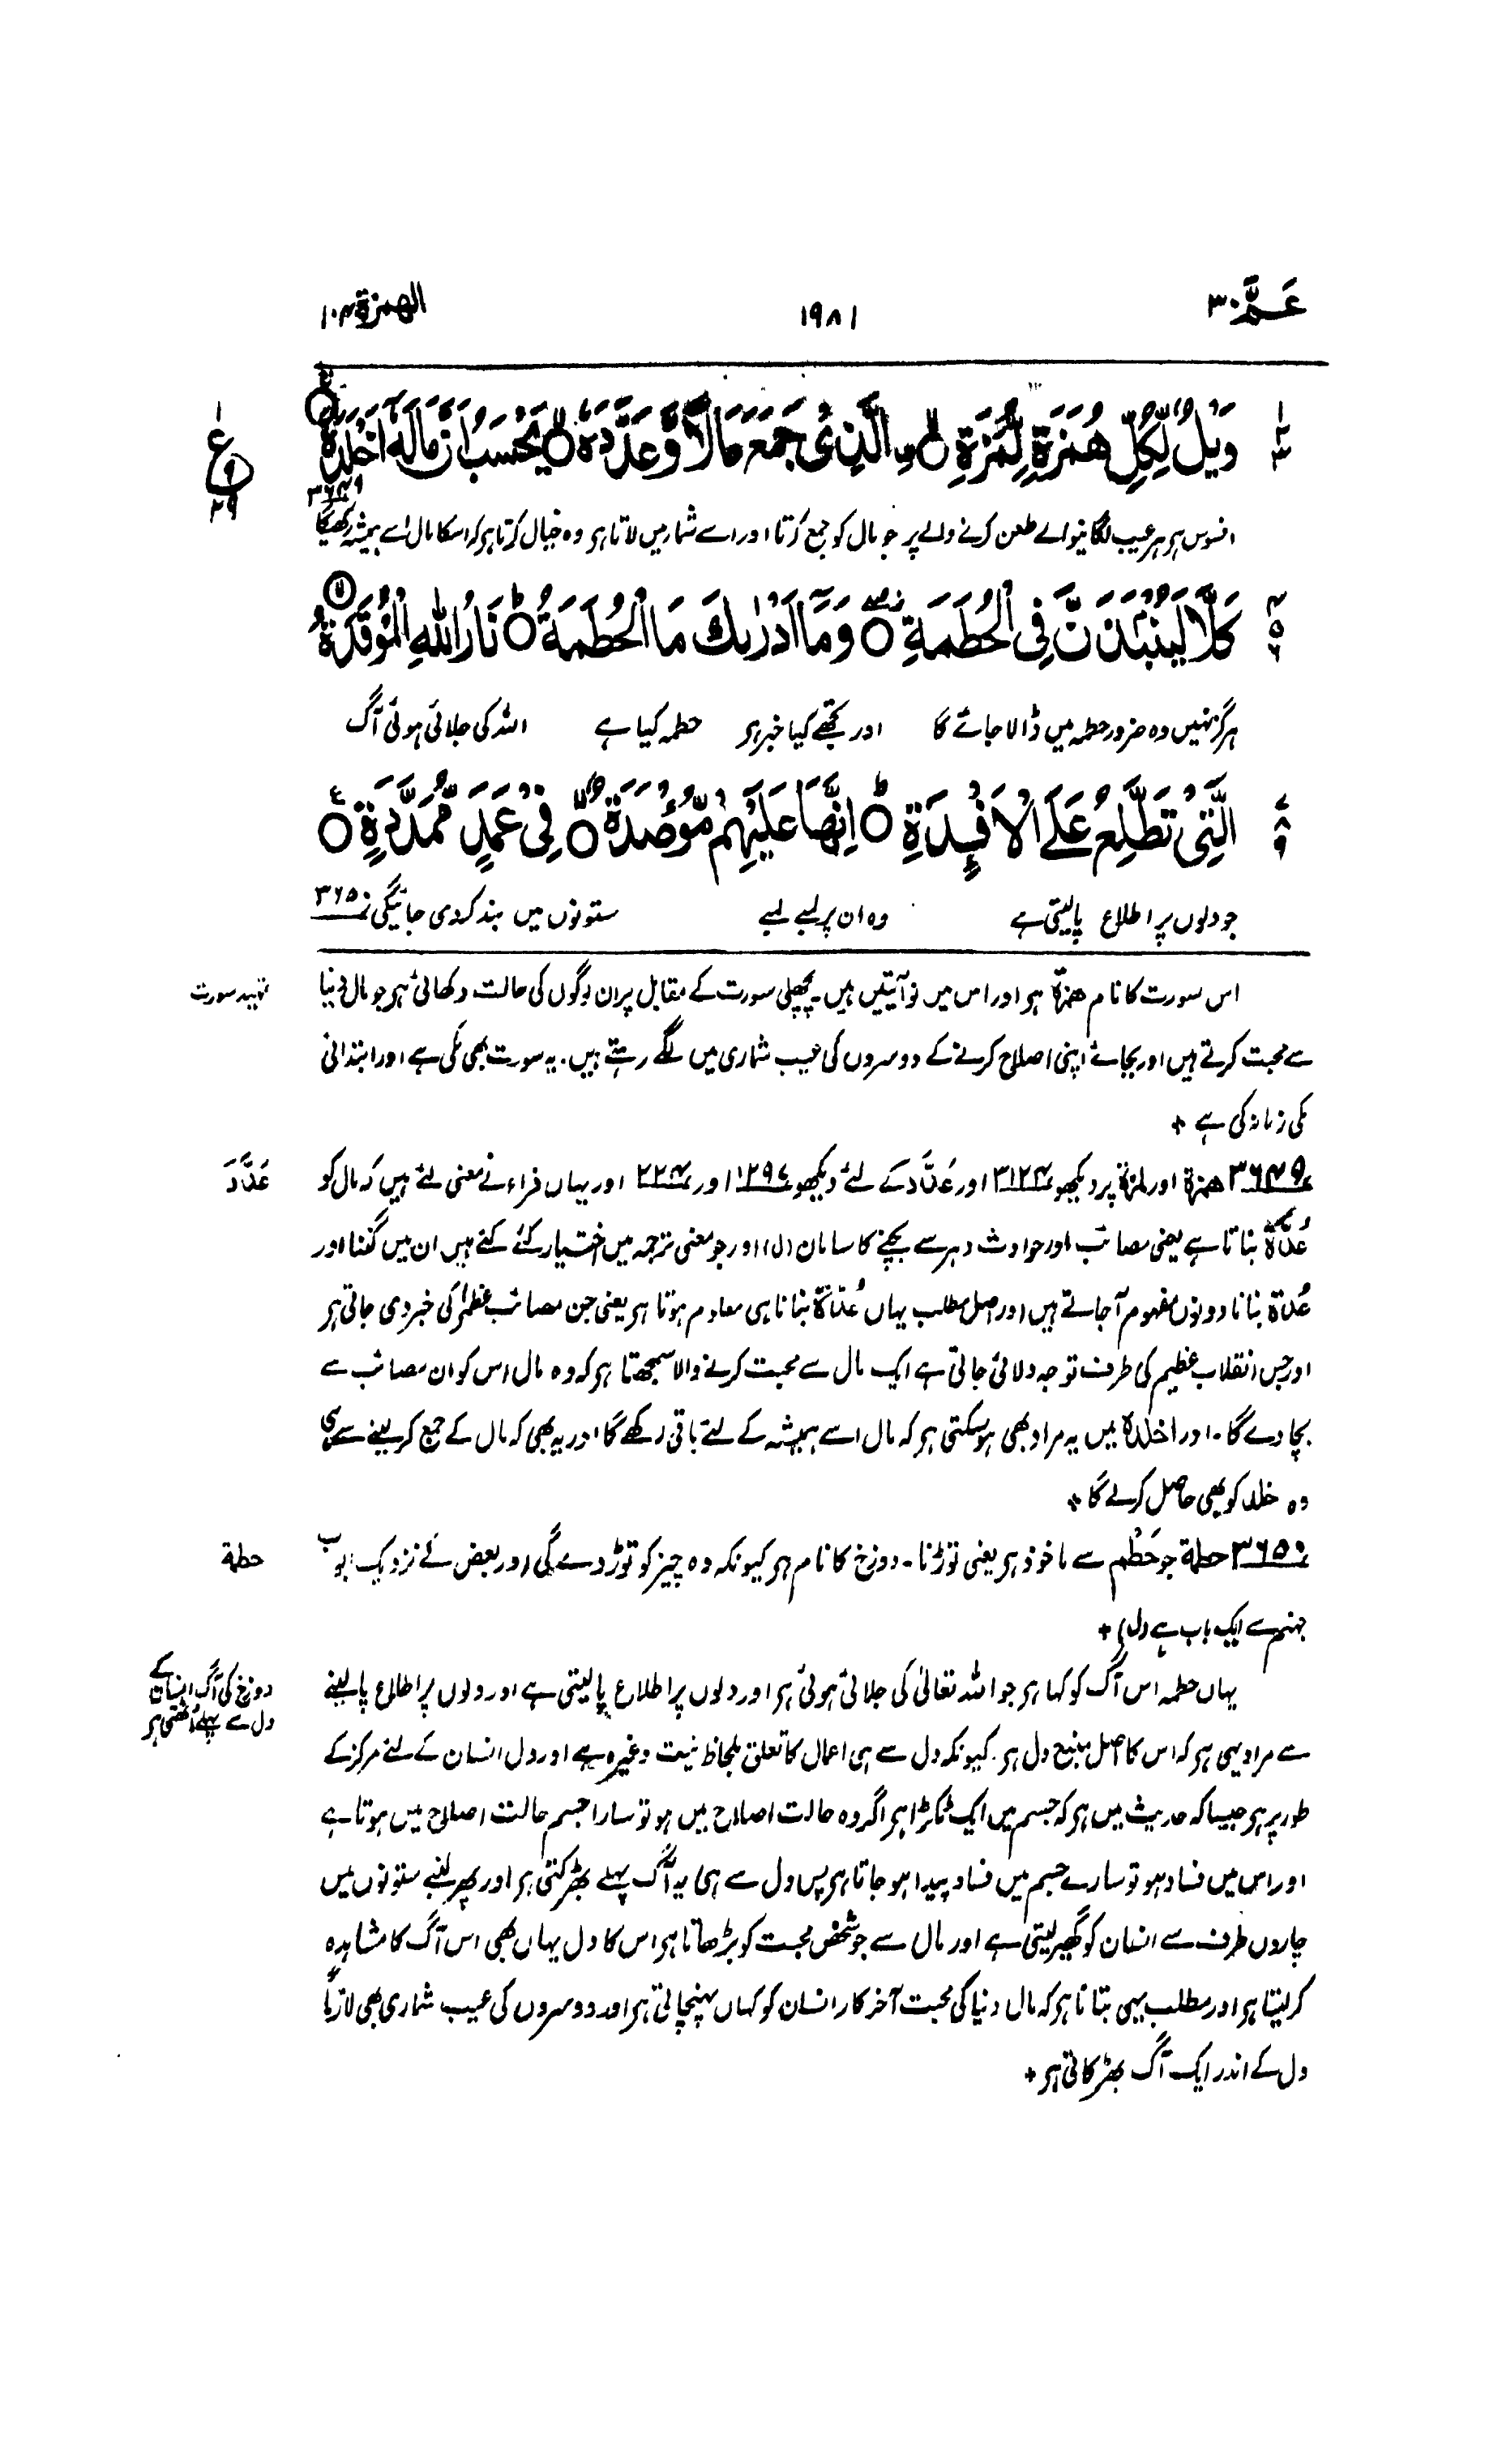 عَمَّ ۳۰
۱۹۸۱
الهمزة ۱۰۴
وَيْلٌ لِّكُلِّ هُمَزَةٍ لُّمَزَةِ ۙ ۨالَّذِيْ جَمَعَ مَالًا وَّعَدَّدَهٗ ۙ يَحْسَبُ اَنَّ مَالَهٗۤ اَخْلَدَهٗ
۳۶۴۹
افسوس ہر ہر عیب لگانیوالے طعن کرنے والے پر جو مال کو جمع کرتا اور اسے شمار میں لاتا ہر وہ خیال کرتا ہر کہ اسکا مال اسے ہمیشہ رکھیگا
كَلَّا لَيُنْۢبَذَنَّ فِي الْحُطَمَةِ ۖ وَمَاۤ اَدْرٰىكَ مَا الْحُطَمَةُ ؕ نَارُ اللّٰهِ الْمُوْقَدَةُ
ہرگز نہیں وہ ضرور حطمہ میں ڈالا جائے گا اور تجھے کیا خبر ہر حطمہ کیا ہے اللہ کی جلائی ہوئی آگ
الَّتِيْ تَطَّلِعُ عَلَى الْاَفْـِٕدَةِ ؕ اِنَّهَا عَلَيْهِمْ مُّؤْصَدَةٌ ۙ فِيْ عَمَدٍ مُّمَدَّدَةٍ
جو دلوں پر اطلاع پالیتی ہے وہ ان پر لمبے لمبے ستونوں میں بند کردی جائیگی ۳۶۵۰
اس سورت کا نام همزة ہر اور اس میں نو آیتیں ہیں۔ پچھلی سورت کے مقابل پر ان لوگوں کی حالت دکھائی ہر جو مال دنیا
تمہید سورت
سے محبت کرتے ہیں اور بجائے اپنی اصلاح کرنے کے دوسروں کی عیب شماری میں لگے رہتے ہیں۔ یہ سورت بھی مکی ہے اور ابتدائی
مکی زمانہ کی ہے +
۳۶۴۹ همزة اور لمزة پر دیکھو ۳۱۲۴ اور عَدَّدَ کے لئے دیکھو ۱۲۹۶ اور ۲۲۴ اور یہاں فراء نے معنی لئے ہیں کہ مال کو
عَدَّدَ
عُدَّة بناتا ہے یعنی مصائب اور حوادث دہر سے بچنے کا سامان (ل) اور جو معنی ترجمہ میں اختیار کئے گئے ہیں ان میں گننا اور
عُدة بنانا دونوں مفہوم آجاتے ہیں اور اصل مطلب یہاں عُدّة بنانا ہی معلوم ہوتا ہر یعنی جن مصائب عظمیٰ کی خبر دی جاتی ہر
اور جس انقلاب عظیم کی طرف توجہ دلائی جاتی ہے ایک مال سے محبت کرنے والا سمجھتا ہر کہ وہ مال اس کو ان مصائب سے
بچا دے گا۔ اور اخلدہ میں یہ مراد بھی ہوسکتی ہر کہ مال اسے ہمیشہ کے لئے باقی رکھے گا اور یہ بھی کہ مال کے جمع کرلینے سے ہی
وہ خلد کو بھی حاصل کرلے گا +
۳۶۵۰ حطمة جو حَطْم سے ماخوذ ہر یعنی توڑنا۔ دوزخ کا نام ہر کیونکہ وہ چیز کو توڑ دے گی اور بعض کے نزدیک ابواب
حطمة
جہنم سے ایک باب ہے (ل) +
یہاں حطمہ اس آگ کو کہا ہر جو اللہ تعالیٰ کی جلائی ہوئی ہر اور دلوں پر اطلاع پالیتی ہے اور دلوں پر اطلاع پالینے
دوزخ کی آگ انسان کے
دل سے پہلے اٹھتی ہر
سے مراد یہی ہر کہ اس کا اصل منبع دل ہر۔ کیونکہ دل سے ہی اعمال کا تعلق بلحاظ نیت وغیرہ ہے اور دل انسان کے لئے مرکز کے
طور پر ہر جیسا کہ حدیث میں ہر کہ جسم میں ایک ٹکڑا ہر اگر وہ حالت اصلاح میں ہو تو سارا جسم حالت اصلاح میں ہوتا ہے
اور اس میں فساد ہو تو سارے جسم میں فساد پیدا ہو جاتا ہر پس دل سے ہی یہ آگ پہلے بھڑکتی ہر اور پھر لمبے ستونوں میں
چاروں طرف سے انسان کو گھیر لیتی ہے اور مال سے جو شخص محبت کو بڑھاتا ہر اس کا دل یہاں بھی اس آگ کا مشاہدہ
کرلیتا ہر اور مطلب یہی بتانا ہر کہ مال دنیا کی محبت آخر کار انسان کو کہاں پہنچاتی ہر اور دوسروں کی عیب شماری بھی لازماً
دل کے اندر ایک آگ بھڑکاتی ہر +